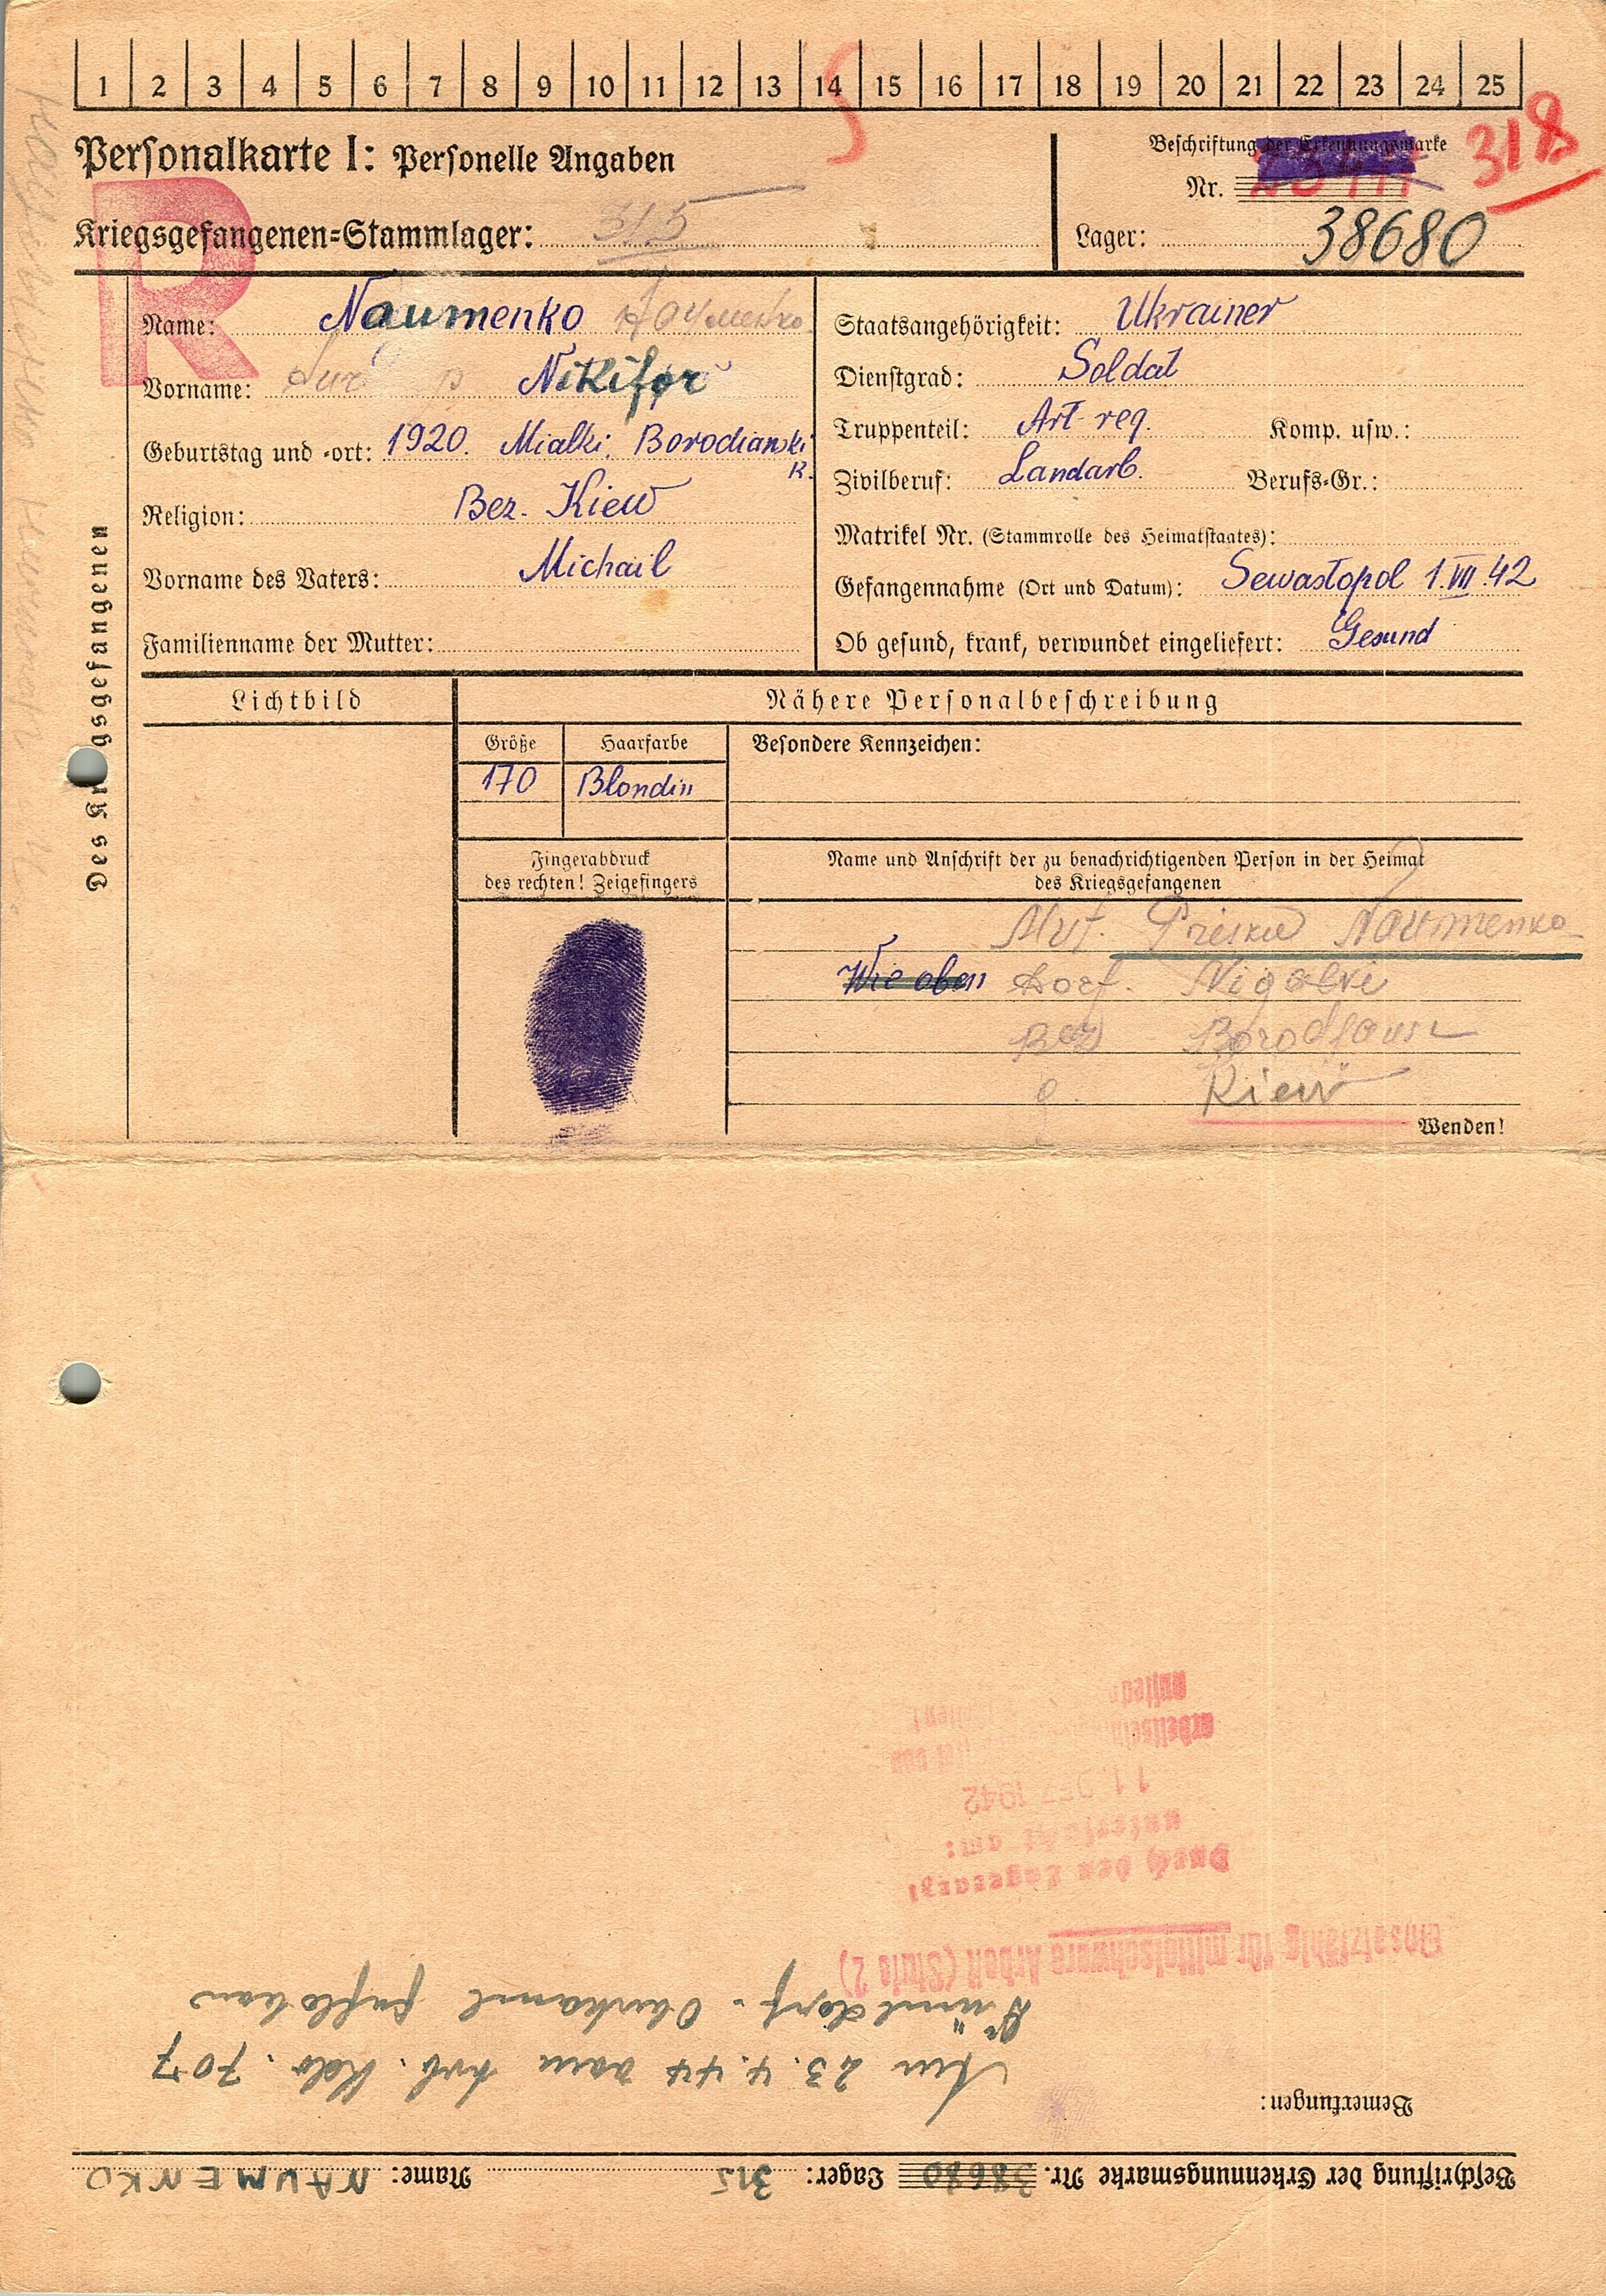 1 2 3 4 5 6 7 8 9 10 11 12 13 14 15 16 17 18 19 20 21 22 23 24 25
Personalkarte I: Personelle Angaben
Kriegsgefangenen=Stammlager: 315
Beschriftung der Erkennungsmarke
Nr.
318
Lager: 38680
R
Des Kr gsgefangenen
Name: Naumenko
Vorname: Nikifor
Geburtstag und -ort: 1920. Mialki. Borodianski
R.
Religion: Bez. Kiew
Vorname des Vaters: Michail
Familienname der Mutter:
Staatsangehörigkeit: Ukrainer
Dienstgrad: Soldat
Truppenteil: Art-reg. Komp. usw.:
Zivilberuf: Landarb. Berufs=Gr.:
Matrikel Nr. (Stammrolle des Heimatstaates):
Gefangennahme (Ort und Datum): Sewastopol 1.VII.42
Ob gesund, krank, verwundet eingeliefert: Gesund
Lichtbild
Nähere Personalbeschreibung
Größe Haarfarbe Besondere Kennzeichen:
170 Blondin
Fingerabdruck
des rechten! Zeigefingers
Name und Anschrift der zu benachrichtigenden Person in der Heimat
des Kriegsgefangenen
Naumenko
Wie oben Dorf.
Kiew
Wenden!
Beschriftung der Erkennungsmarke Nr. 38680 Lager: 315 Name: NAUMENKO
Bemerkungen:
Am 23.4.44 vom Arb. Kdo. 707
Einsatzfähig für mittelschwere Arbeit (Stufe 2)
Durch den Lagerarzt
untersucht am:
1942